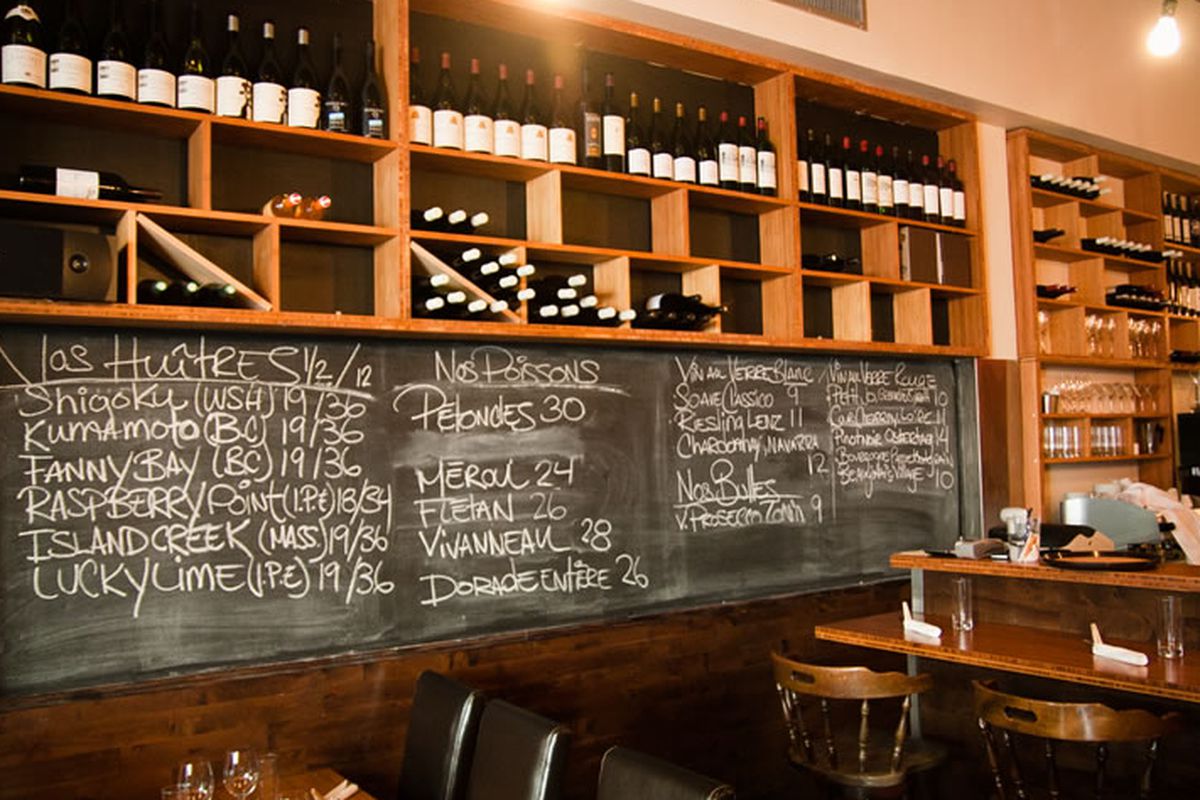 Nos HUÎTRES 1/2 / 12
Shigoku (WSH) 19/36
Kumamoto (BC) 19/36
FANNY BAY (BC) 19/36
RASPBERRY Point (I.P.E) 18/34
ISLAND CREEK (MASS) 19/36
LUCKY Lime (I.P.E) 19/36
Nos Poissons
Pétoncles 30
MÉROU 24
FLÉTAN 26
VIVANNEAU 28
DORADE ENTIÈRE 26
Vin au VERRE Blanc
SOAVE Classico 9
Riesling LENZ 11
CHARDONNAY, NAVARRA
12
Nos Bulles
V. PROSECCO Zonin 9
Vin au VERRE Rouge
10
11
14
Beaujolais Village - 10